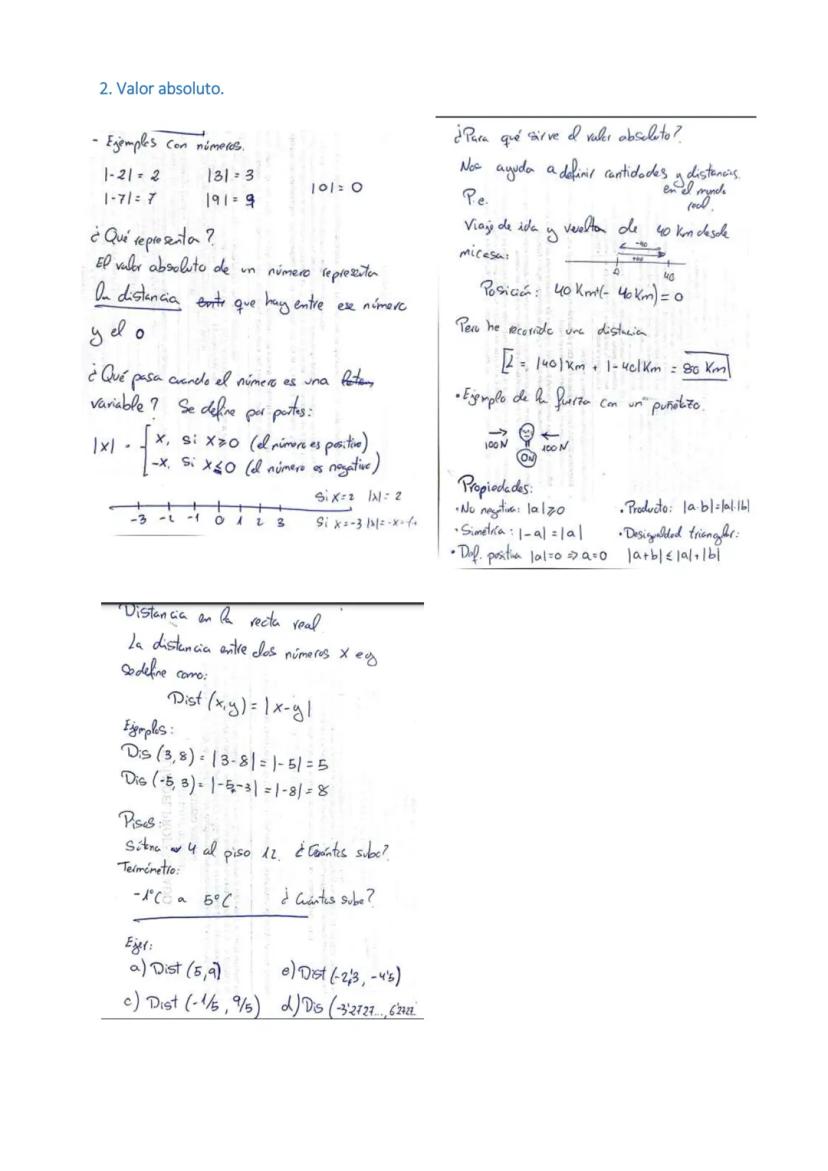 2. Valor absoluto.
- Ejemplos con números.
|-2| = 2 |3| = 3
|-7| = 7 |9| = 9 |0| = 0
¿Qué representa?
El valor absoluto de un número representa
la distancia que hay entre ese número
y el 0
¿Qué pasa cuando el número es una
variable? Se define por partes:
|x| = { x, si x≥0 (el número es positivo)
-x, si x≤0 (el número es negativo)
Si x=2 |x|= 2
-3 -2 -1 0 1 2 3 Si x=-3 |x|=-x=
¿Para qué sirve el valor absoluto?
Nos ayuda a definir cantidades y distancias
en el mundo real.
P.e.
Viaje de ida y vuelta de 40 Km desde
mi casa:
-40
+40
0 40
Posición: 40 Km+(- 40 Km) = 0
Pero he recorrido una distancia
= |40| Km + |-40| Km = 80 Km
• Ejemplo de la fuerza con un puñetazo.
100N 100N
0N
Propiedades:
• No negativa: |a|≥0 • Producto: |a·b|=|a|·|b|
• Simetría: |-a| = |a| • Desigualdad triangular:
• Def. positiva |a|=0 ⇒ a=0 |a+b| ≤ |a|+|b|
Distancia en la recta real
La distancia entre dos números x e y
se define como:
Dist (x,y) = |x-y|
Ejemplos:
Dis (3,8) = |3-8| = |-5| = 5
Dis (-5, 3) = |-5-3| = |-8| = 8
Pisos:
4 al piso 12. ¿Cuántos sube?
Termómetro:
-1°C a 5°C. ¿Cuántos sube?
Ejer:
a) Dist (5,9) e) Dist (-2'3, -4'5)
c) Dist (-1/5, 9/5) d) Dis (-3'2727..., 6'2727